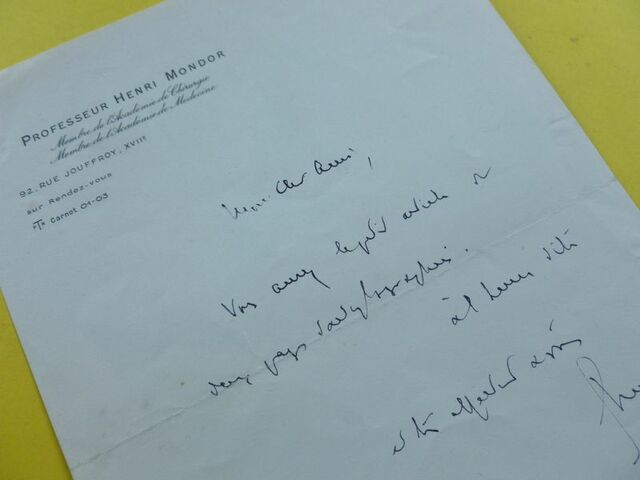 PROFESSEUR HENRI MONDOR
Membre de l'Académie de Chirurgie
Membre de l'Académie de Médecine
92, RUE JOUFFROY, XVIIe
sur Rendez-vous
Tx Carnot 01-03
Mon cher ami,
Vous aurez le petit article et
deux pages d'autographies.
à l'heure dite